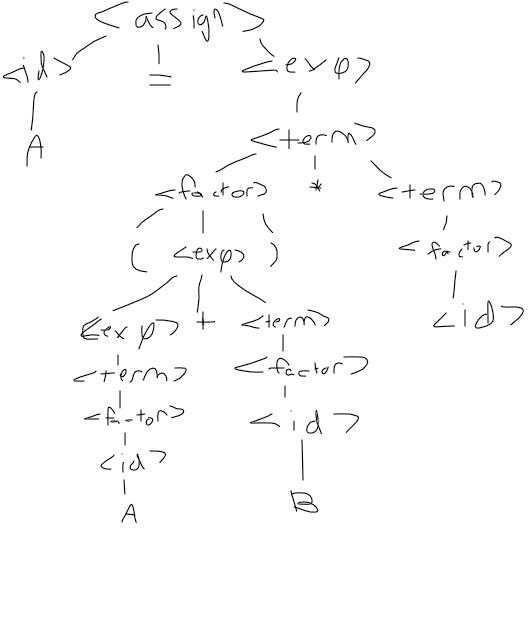 <assign>
<id> = <exp>
A <term>
<factor> * <term>
( <exp> ) <factor>
<exp> + <term> <id>
<term> <factor>
<factor> <id>
<id>
A B